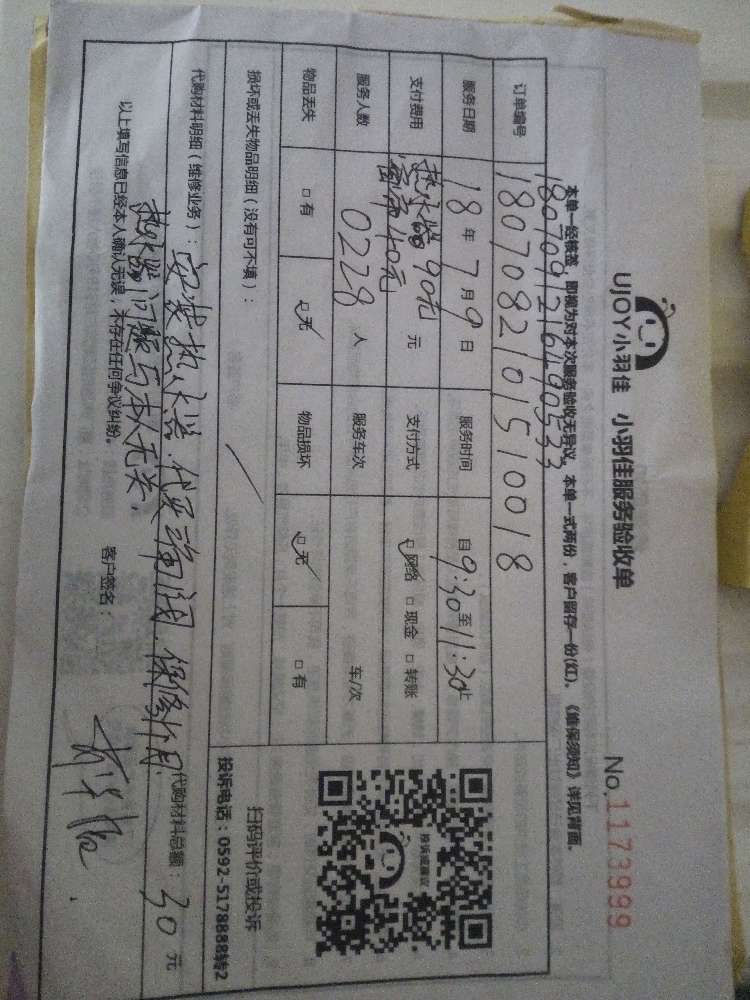 UJOY小羽佳 小羽佳服务验收单
No.1173999
本单一经核签，即视为对本次服务验收无异议。本单一式两份，客户留存一份(红)。《维保须知》详见背面。
1807091216490533
订单编号 180708210151 0018
服务日期 18年7月9日 服务时间 自9:30至11:30止
支付费用 热水器90元 元 支付方式 网络 现金 转账
40元
服务人数 0228人 服务车次 车/次
物品丢失 有 无 物品损坏 无 有
损坏或丢失物品明细（没有可不填）：
投诉或建议
扫码评价或投诉
投诉电话：0592-5178888转2
代购材料明细（维修业务）：安装热水器.代买角阀.保修1个月.
热水器问题与本人无关.
代购材料总额：30元
以上填写信息已经本人确认无误，未存在任何争议纠纷。 客户签名：